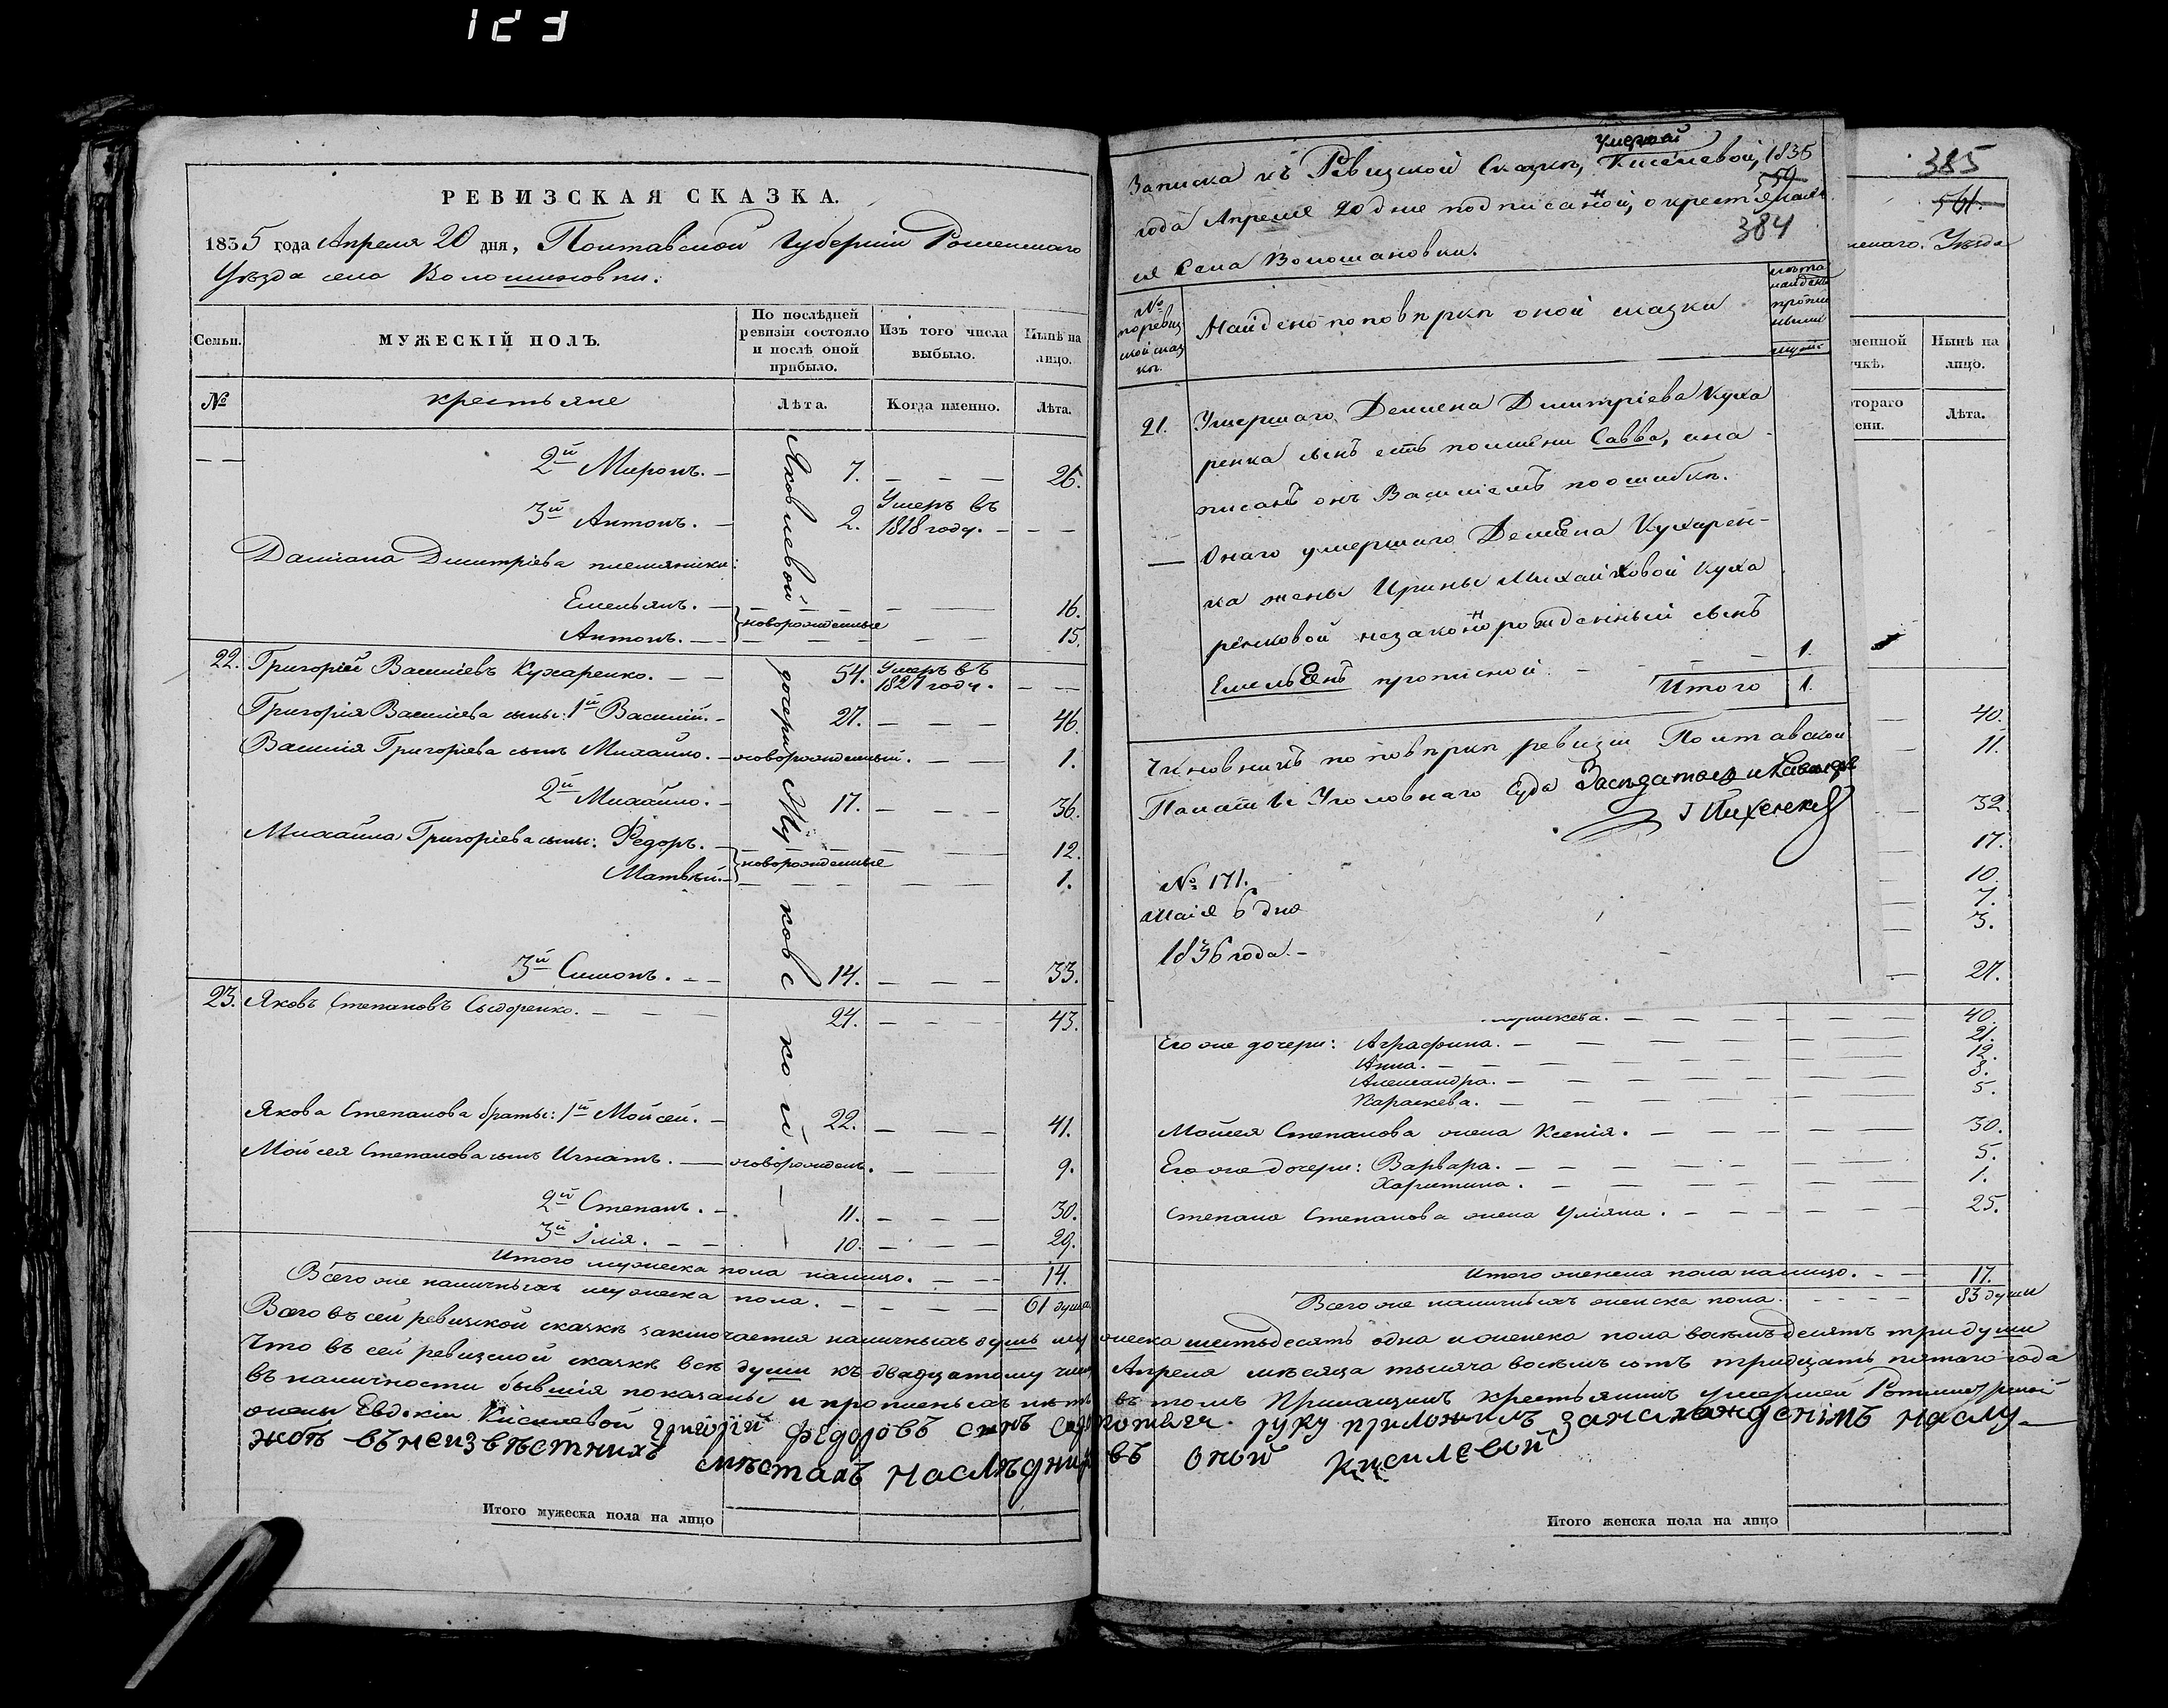 123
РЕВИЗСКАЯ СКАЗКА.
1835 года Апреля 20 дня, Полтавской Губерніи Роменскаго
Уѣзда села Волошиновки.
Семьи.
МУЖЕСКІЙ ПОЛЪ.
По послѣдней ревизіи состояло и послѣ оной прибыло.
Изъ того числа выбыло.
Нынѣ на лицо.
№
крестьяне
Лѣта.
Когда именно.
Лѣта.
2й Миронъ. 7. 26.
3й Антонъ. 2. Умеръ въ 1818 году.
Даміана Дмитріева племянники:
Емельянъ. новорожденные 16.
Антонъ. 15.
22. Григорій Васильевъ Кухаренко. 54. Умеръ въ 1827 году.
Григорія Васильева сыны: 1й Василій. 27. 46.
Василія Григоріева сынъ Михайло. новорожденный. 1.
2й Михайло. 17. 36.
Михайла Григоріева сыны: Федоръ. новорожденные 12.
Матвѣй. 1.
3й Симонъ. 14. 33.
23. Яковъ Степановъ Сыдоренко. 24. 43.
Якова Степанова братья: 1й Мойсей. 22. 41.
Мойсея Степанова сынъ Игнатъ. новорожден. 9.
2й Степанъ. 11. 30.
3й Ілія. 10. 29.
Итого мужеска пола налицо. 14.
Всего же наличныхъ мужеска пола. 61 душа
Яковлевой дочери
Записка къ Ревизской Сказкѣ, умершей Киселевой, 1835
года Апреля 20 дня подписанной, о крестьянахъ
559
384
ея Села Волошиновки.
№ по ревизской сказкѣ.
Найдено по повѣркѣ оной сказки
21. Умершаго Демьена Дмитріева Куха
ренка сынъ есть по имени Савва, а на
писанъ онъ Василіемъ по ошибкѣ.
Онаго умершаго Демьена Кухарен-
ка жены Ирины Михайловой Куха
ренковой незаконнорожденный сынъ
Емельенъ прописной 1.
Итого 1.
Чиновникъ по повѣркѣ ревизіи Полтавской
Палаты Уголовнаго Суда Засѣдатель
№ 171.
Маія 6 дня
1836 года.
385
561.
Уѣзда
менной
чкѣ.
Нынѣ на лицо.
отораго
ени.
Лѣта.
40.
11.
32.
17.
10.
7.
3.
27.
40.
Его же дочери: Аграфина. 21.
Анна. 12.
Александра. 8.
Параскева. 5.
Мойсея Степанова жена Ксенія. 30.
Его же дочери: Варвара. 5.
Харитина. 1.
Степана Степанова жена Уліяна. 25.
Итого женска пола налицо. 17.
Всего же наличныхъ женска пола. 83 души
Всего въ сей ревизской сказкѣ заключается наличныхъ душъ мужеска шестьдесятъ одна и женска пола восемьдесятъ три души
Что въ сей ревизской сказкѣ всѣ души къ двадцатому числу Апреля мѣсяца тысяча восемьсотъ тридцать пятаго года
въ наличности бывшія показаны и прописныхъ нѣтъ въ томъ крестьянинъ умершей Ротмистршей
жены Евдокіи Киселевой Григорій Федоровъ сынъ руку приложилъ
въ неизвестнихъ местахъ наследниковъ оной Киселевой
Итого мужеска пола на лицо
Итого женска пола на лицо